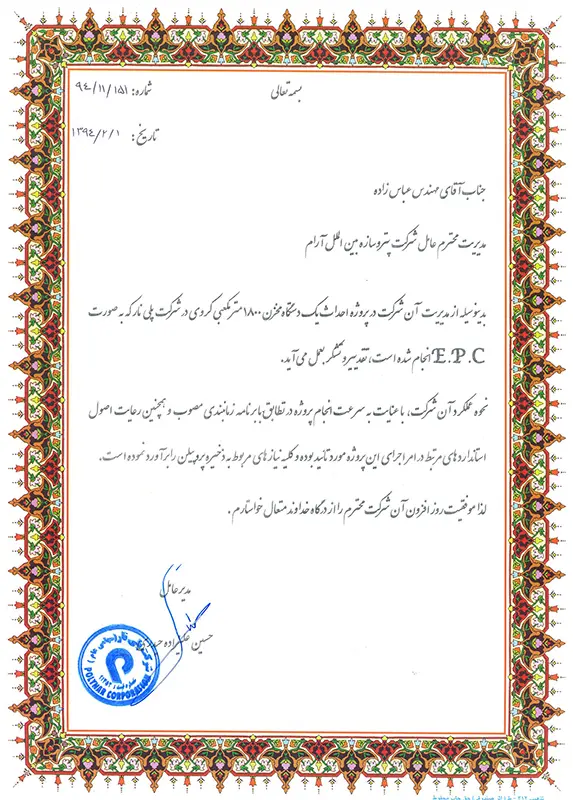 بسمه تعالی
شماره: ۹۴/۱۱/۱۵۱
تاریخ: ۱۳۹۴/۲/۱
جناب آقای مهندس عباس زاده
مدیریت محترم عامل شرکت پتروسازه بین الملل آرام
بدینوسیله از مدیریت آن شرکت در پروژه احداث یک دستگاه مخزن ۱۸۰۰ مترمکعبی کروی در شرکت پلی نار که به صورت
E.P.C انجام شده است، تقدیر و تشکر بعمل می آید.
نحوه عملکرد آن شرکت، با عنایت به سرعت انجام پروژه در تطابق با برنامه زمانبندی مصوب و همچنین رعایت اصول
استانداردهای مرتبط در امر اجرای این پروژه مورد تائید بوده و کلیه نیازهای مربوط به ذخیره پروپیلن را برآورد نموده است.
لذا موفقیت روز افزون آن شرکت محترم را از درگاه خداوند متعال خواستارم.
مدیر عامل
حسین علیزاده
شرکت پلی نار (سهامی عام)
POLYNAR CORPORATION